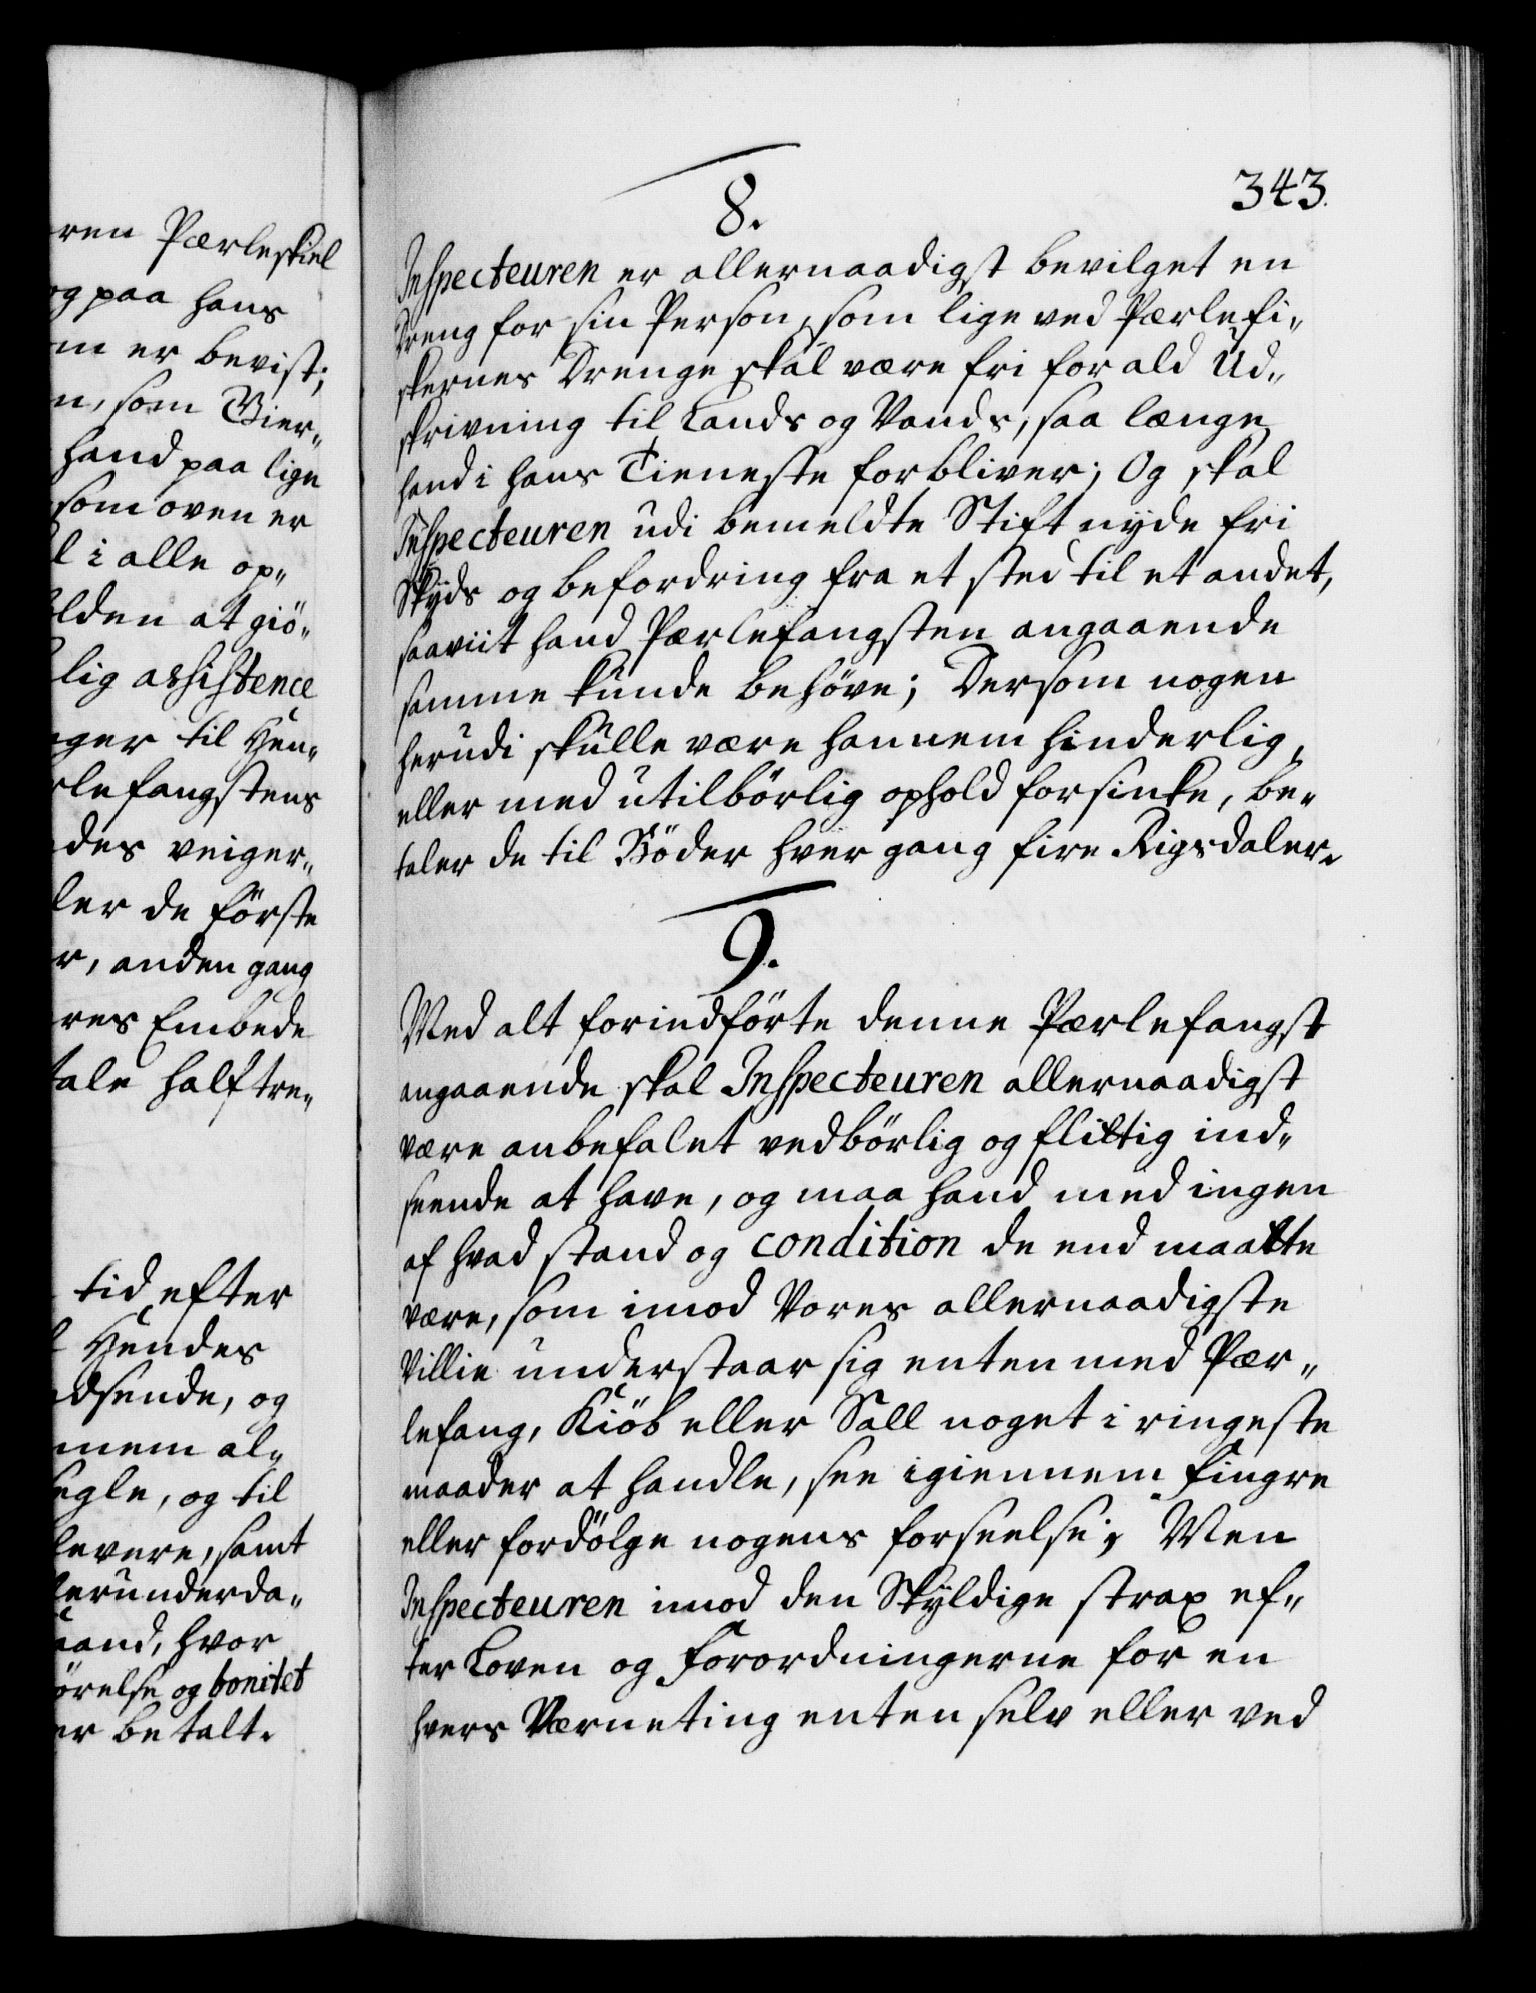 ren Pærleskiel
og paa hans
m er bevist;
n, som Bier„
hand paa lige
som oven er
l i alle op„
lden at giö„
lig assistence
ger til Hen„
rlefangstens
des veiger„
ler de förste
r, anden gang
res Embede
tale halftre„
tid efter
Hendes
dsende, og
mem al„
segle, og til
levere, samt
lerunderda„
aand, hvor
örelse og bonitet
er betalt.
343.
8.
Inspecteuren er allernaadigst bevilget en
Dreng for sin Person, som lige ved Pærlefi„
skernes Drenge skal være fri for ald Ud„
skrivning til Lands og Vands, saa længe
hand i hans Tieneste forbliver; Og skal
Inspecteuren udi bemeldte Stift nyde fri
Skyds og befordring fra et sted til et andet,
saaviit hand Pærlefangsten angaaende
samme kunde behöve; Dersom nogen
herudi skulle være hannem hinderlig,
eller med utilbörlig ophold forsinke, be„
taler de til Böder hver gang fire Rigsdaler.
9.
Med alt forindförte denne Pærlefangst
angaaende skal Inspecteuren allernaadigst
være anbefalet vedbörlig og flittig ind„
seende at have, og maa hand med ingen
af hvad stand og condition de end maatte
være, som imod Vores allernaadigste
Villie understaar sig enten med Pær„
lefang, Kiöb eller Sall noget i ringeste
maader at handle, see igiennem Fingre
eller fordölge nogens forseelse; Men
Inspecteuren imod den Skyldige strax ef„
ter Loven og Forordningerne for en
hvers Værneting enten selv eller ved